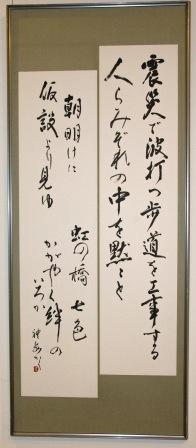 震災で波打つ歩道を工事する
人らみぞれの中を黙々と
朝明けに
仮設より見ゆ
虹の橋七色
かがやく絆の
いろか